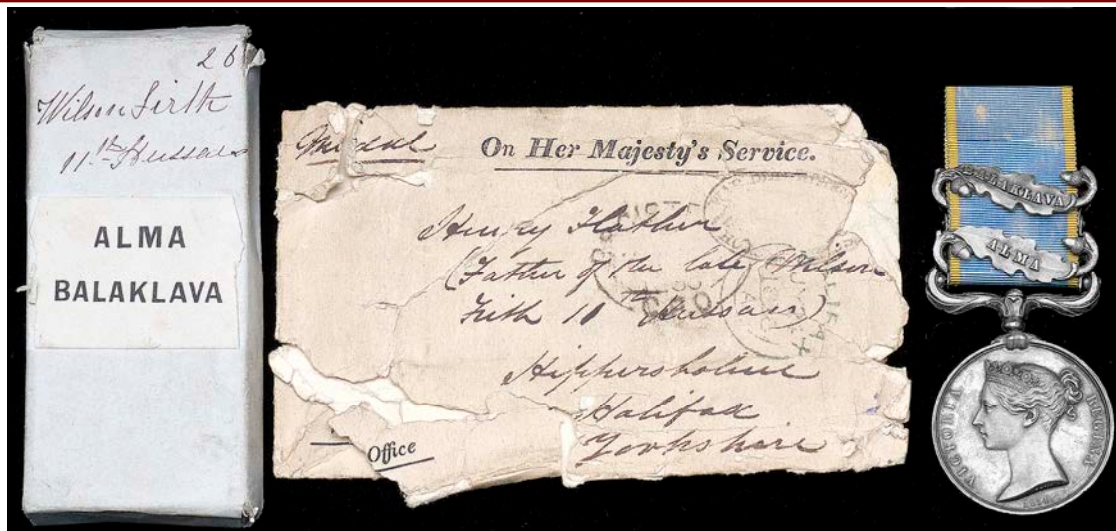 26
Wilson Firth
11th Hussars
ALMA
BALAKLAVA
Medal
On Her Majesty's Service.
Henry Flather
(Father of the late Wilson
Firth 11th Hussars)
Hipperholme
Halifax
Yorkshire
Office
HALIFAX
BALAKLAVA
ALMA
VICTORIA REGINA